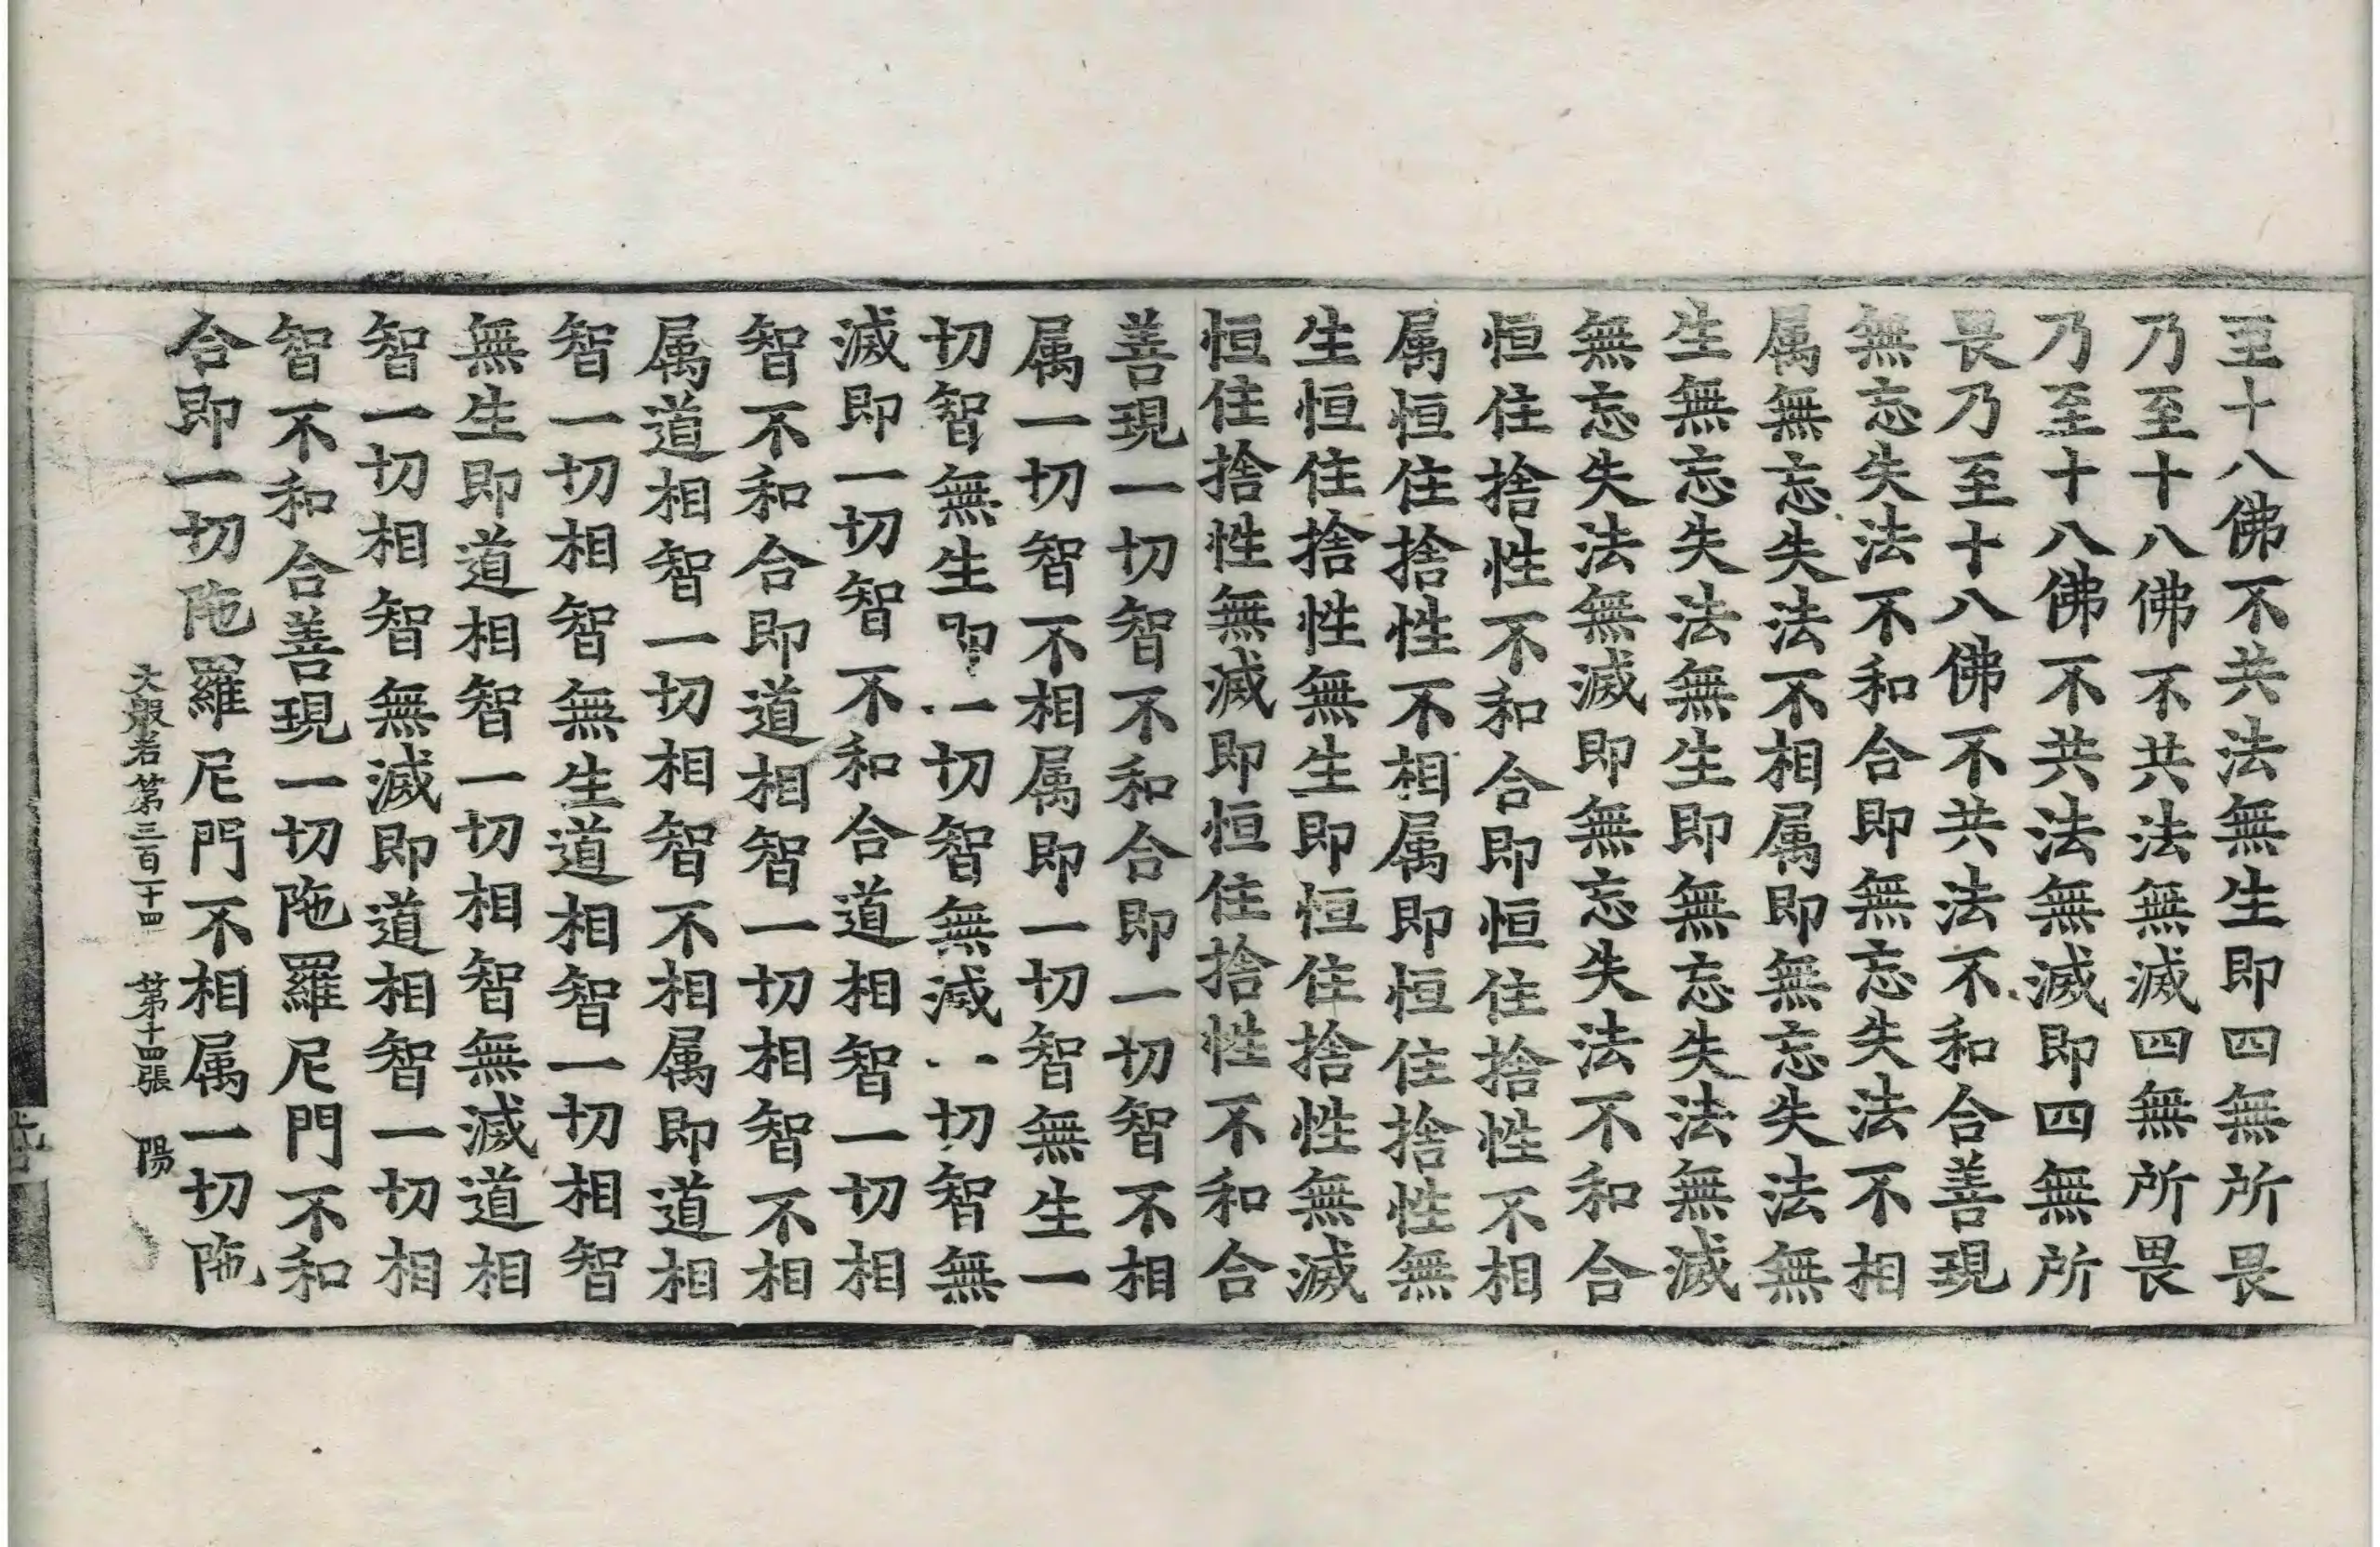 至十八佛不共法無生即四無所畏
乃至十八佛不共法無滅四無所畏
乃至十八佛不共法無滅即四無所
畏乃至十八佛不共法不和合善現
無忘失法不和合即無忘失法不相
属無忘失法不相属即無忘失法無
生無忘失法無生即無忘失法無滅
無忘失法無滅即無忘失法不和合
恒住捨性不和合即恒住捨性不相
属恒住捨性不相属即恒住捨性無
生恒住捨性無生即恒住捨性無滅
恒住捨性無滅即恒住捨性不和合
善現一切智不和合即一切智不相
属一切智不相属即一切智無生一
切智無生即一切智無滅一切智無
滅即一切智不和合道相智一切相
智不和合即道相智一切相智不相
属道相智一切相智不相属即道相
智一切相智無生道相智一切相智
無生即道相智一切相智無滅道相
智一切相智無滅即道相智一切相
智不和合善現一切陁羅尼門不和
合即一切陁羅尼門不相属一切陁
大般若第三百二十四 第十四張 陽